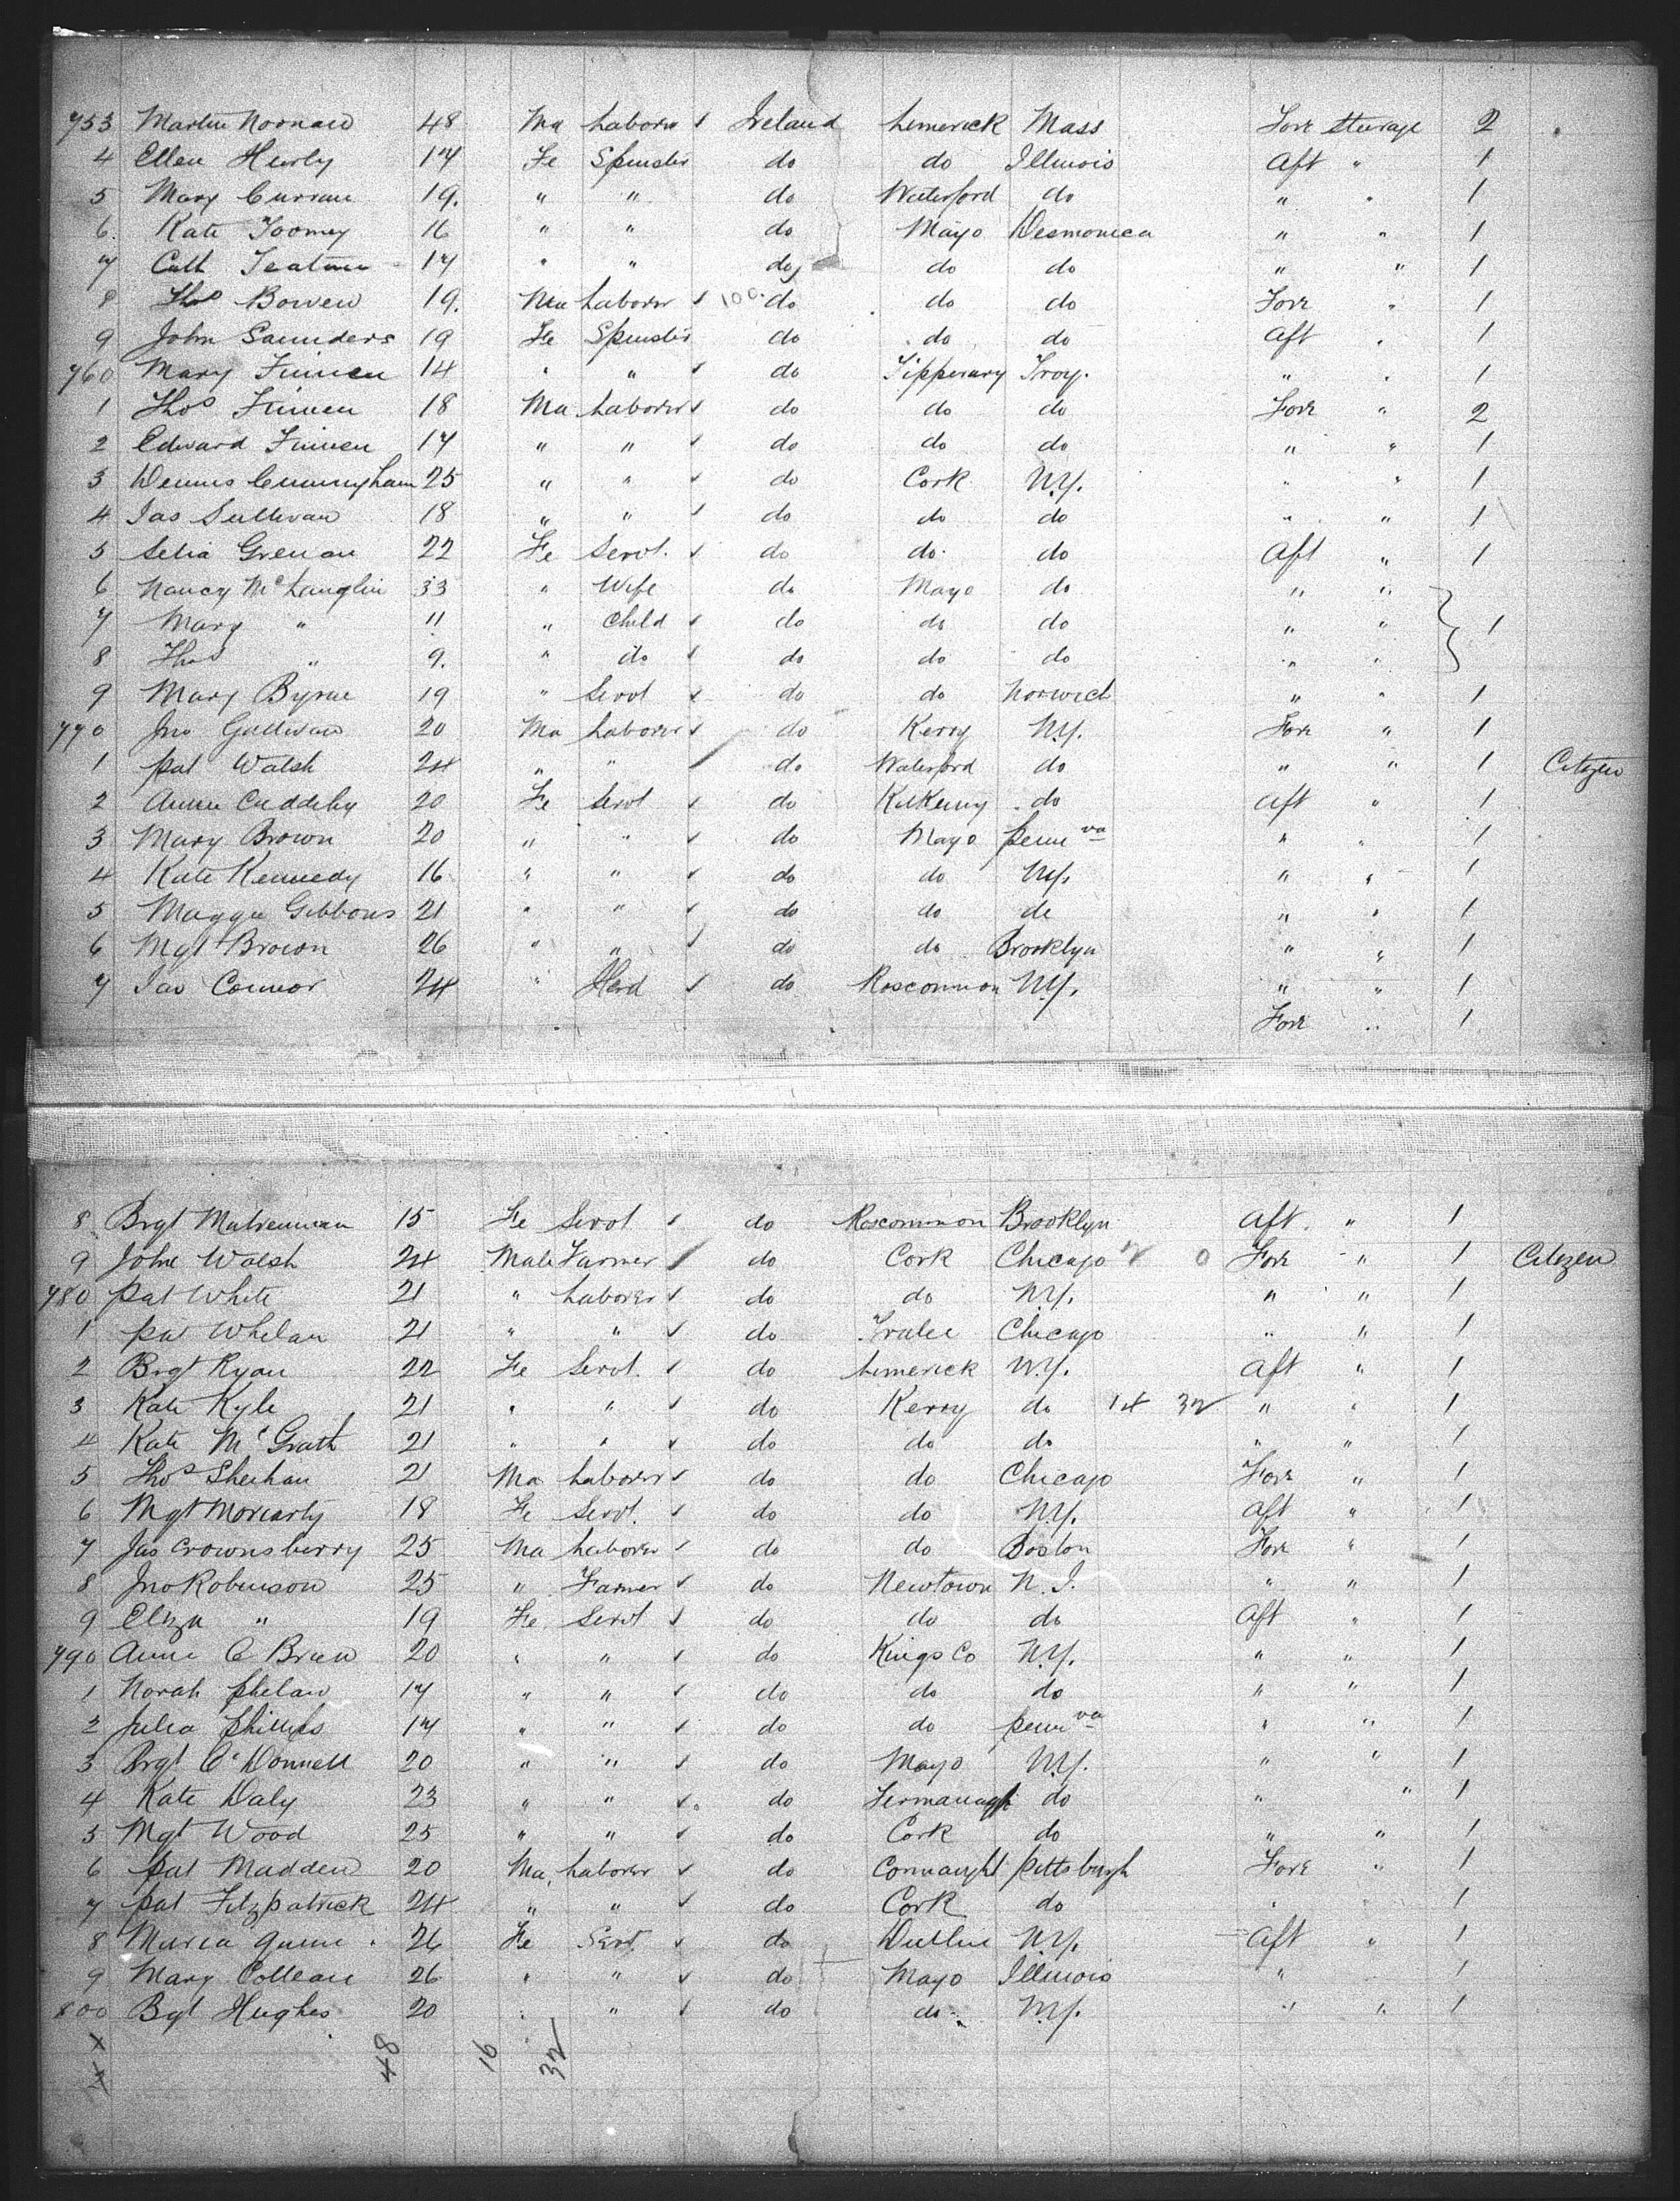 753 Martin Noonan 48 Ma Laborer Ireland Limerick Mass Fore Steerage 2
4 Ellen Hurly 17 Fe Spinster do do Illinois Aft " 1
5 Mary Curran 19. " " do Waterford do " " 1
6. Kate Toomey 16 " " do Mayo Desmonica " " 1
7 Cath 17 " " do do do " " 1
8 Thos Bowen 19. Ma Laborer 100. do do do Fore " 1
9 John Saunders 19 Fe Spinster do do do Aft " 1
760 Mary Finnen 14 " " do Tipperary Troy. " " 1
1 Thos Finnen 18 Ma Laborer do do do Fore " 2
2 Edward Finnen 17 " " do do do " " 1
3 Dennis Cunningham 25 " " do Cork N.Y. " " 1
4 Jas Sullivan 18 " " do do do " " 1
5 Selia Grenan 22 Fe Servt. do do do Aft " 1
6 Nancy McLauglin 33 " Wife do Mayo do " "
7 Mary " 11 " Child do do do " " 1
8 Thos " 9. " do do do do " "
9 Mary Byrne 19 " Servt do do Norwich " " 1
770 Jno Gullivan 20 Ma Laborer do Kerry N.Y. Fore " 1
1 Pat Walsh 24 " " do Waterford do " " 1 Citizen
2 Annie Cuddihy 20 Fe Servt do Kilkenny do Aft " 1
3 Mary Brown 20 " " do Mayo Penn va " " 1
4 Kate Kennedy 16 " " do do N.Y. " " 1
5 Maggie Gibbons 21 " " do do do " " 1
6 Mgt Brown 26 " " do do Brooklyn " " 1
7 Jas Connor 24 " Herd do Roscommon N.Y. " " 1
Fore " 1
8 Brgt Mulrennan 15 Fe Servt do Roscommon Brooklyn Aft. " 1
9 John Walsh 24 Male Farmer do Cork Chicago 0 Fore " 1 Citizen
780 Pat White 21 " Laborer do do N.Y. " " 1
1 Pat Whelan 21 " " do Tralee Chicago " " 1
2 Brgt Ryan 22 Fe Servt. do Limerick N.Y. Aft " 1
3 Kate Kyle 21 " " do Kerry do 14 32 " " 1
4 Kate McGrath 21 " " do do do " " 1
5 Thos Sheehan 21 Ma Laborer do do Chicago Fore " 1
6 Mgt Moriarty 18 Fe Servt. do do N.Y. Aft " 1
7 Jas Crownsberry 25 Ma Laborer do do Boston Fore " 1
8 Jno Robinson 25 " Famer do Newtown N.J. " " 1
9 Eliza " 19 Fe Servt do do do Aft " 1
790 Annie O Brien 20 " " do Kings Co N.Y. " " 1
1 Norah Phelan 17 " " do do do " " 1
2 Julia Phillips 17 " " do do Penn va " " 1
3 Brgt O'Donnell 20 " " do Mayo N.Y. " " 1
4 Kate Daly 23 " " do Fermanagh do " " 1
5 Mgt Wood 25 " " do Cork do " " 1
6 Pat Madden 20 Ma, Laborer do Connaught Pittsburgh Fore " 1
7 Pat Fitzpatrick 24 " " do Cork do " 1
8 Maria Quinn 26 Fe Servt. do Dublin N.Y. Aft " 1
9 Mary Collean 26 " " do Mayo Illinois " " 1
800 Bgt Hughes 20 " " do do N.Y. " " 1
48 16 32